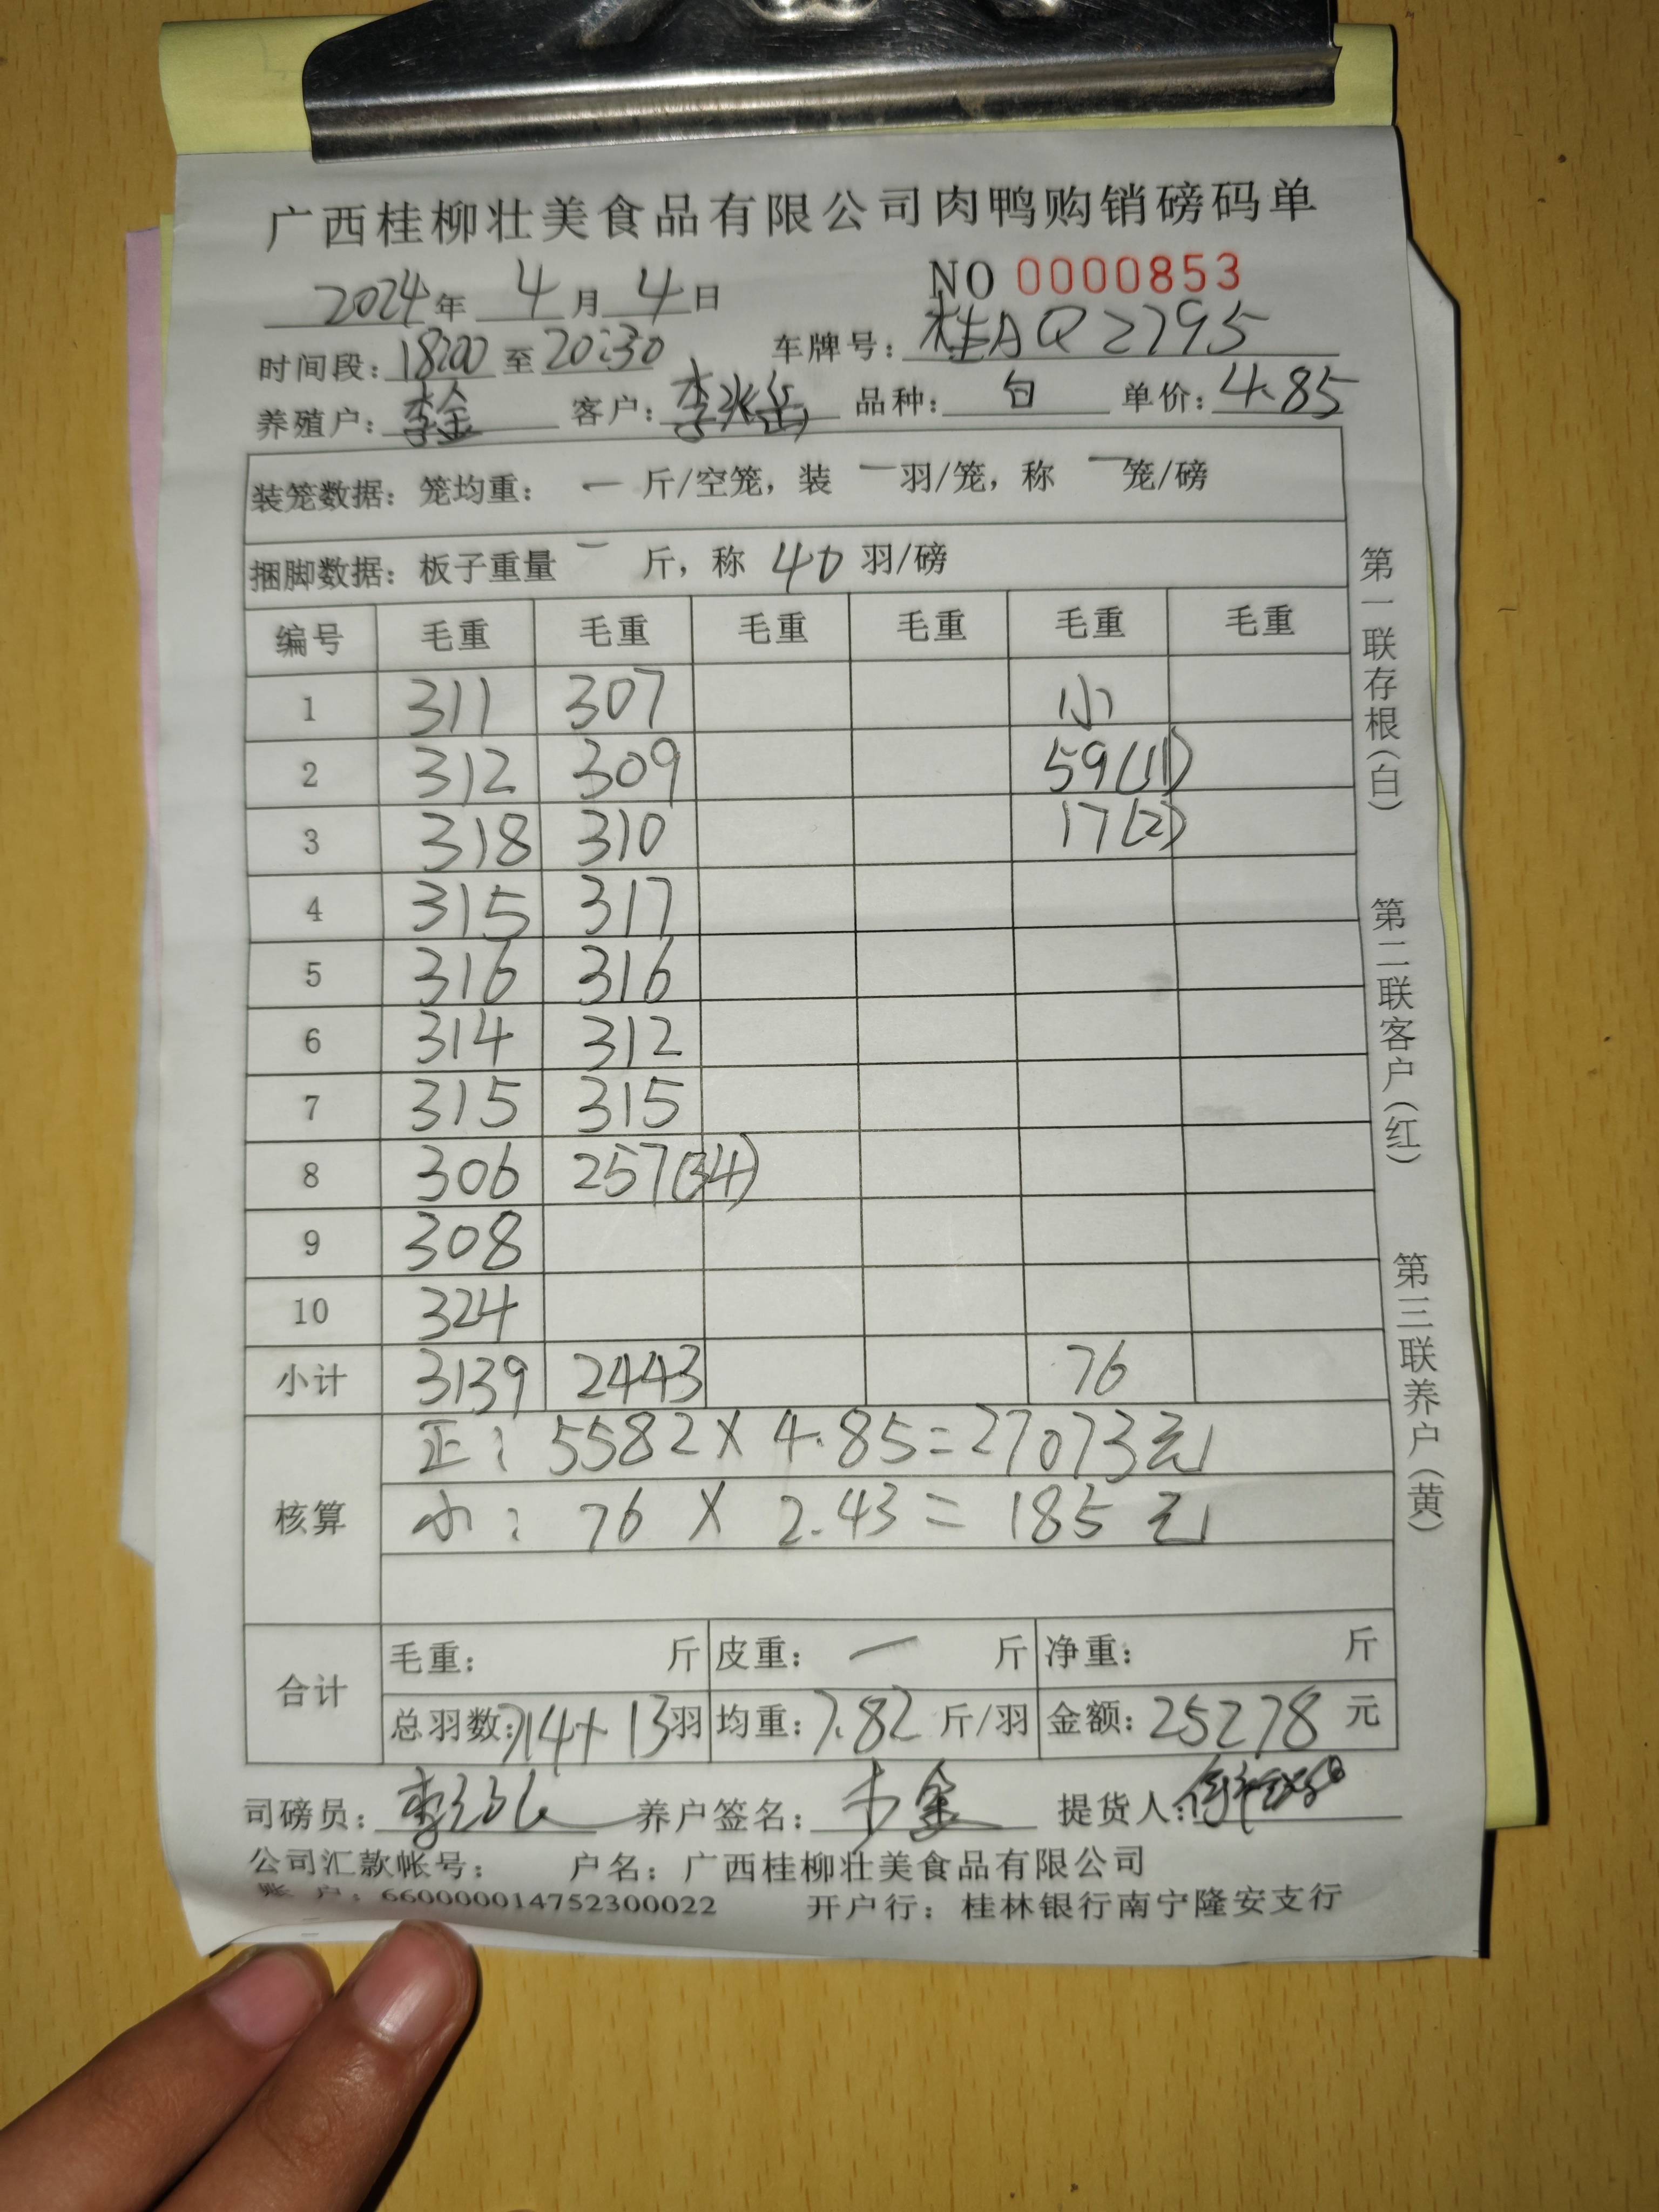 广西桂柳壮美食品有限公司肉鸭购销磅码单
2024年 4月 4日 NO 0000853
时间段：18:00 至 20:30 车牌号：桂AQ2795
养殖户：李金 客户：李 品种：白 单价：4.85
装笼数据：笼均重：一 斤/空笼，装 一 羽/笼，称 一 笼/磅
捆脚数据：板子重量 一 斤，称 40 羽/磅
编号 毛重 毛重 毛重 毛重 毛重 毛重
1 311 307 小
2 312 309 59(11)
3 318 310 17(2)
4 315 317
5 316 316
6 314 312
7 315 315
8 306 257(34)
9 308
10 324
小计 3139 2443 76
核算
正：5582×4.85=27073元
小：76×2.43=185元
合计
毛重： 斤 皮重：一 斤 净重： 斤
总羽数：714+13羽 均重：7.82 斤/羽 金额：25278 元
司磅员：李 养户签名：李金 提货人：
公司汇款帐号： 户名：广西桂柳壮美食品有限公司
账户：660000014752300022 开户行：桂林银行南宁隆安支行
第一联存根（白）
第二联客户（红）
第三联养户（黄）